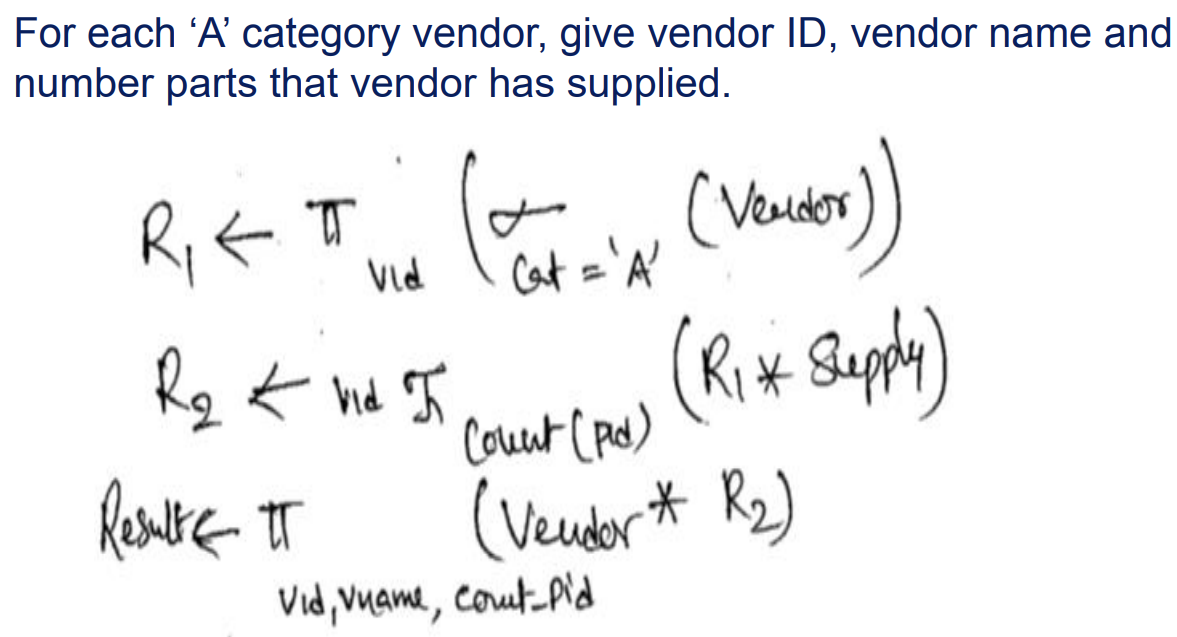 For each ‘A’ category vendor, give vendor ID, vendor name and
number parts that vendor has supplied.
R₁ ← π Vid (σ Cat = 'A' (Vendor))
R₂ ← Vid ℱ Count (pid) (R₁ * Supply)
Result ← π Vid, Vname, count_Pid (Vendor * R₂)